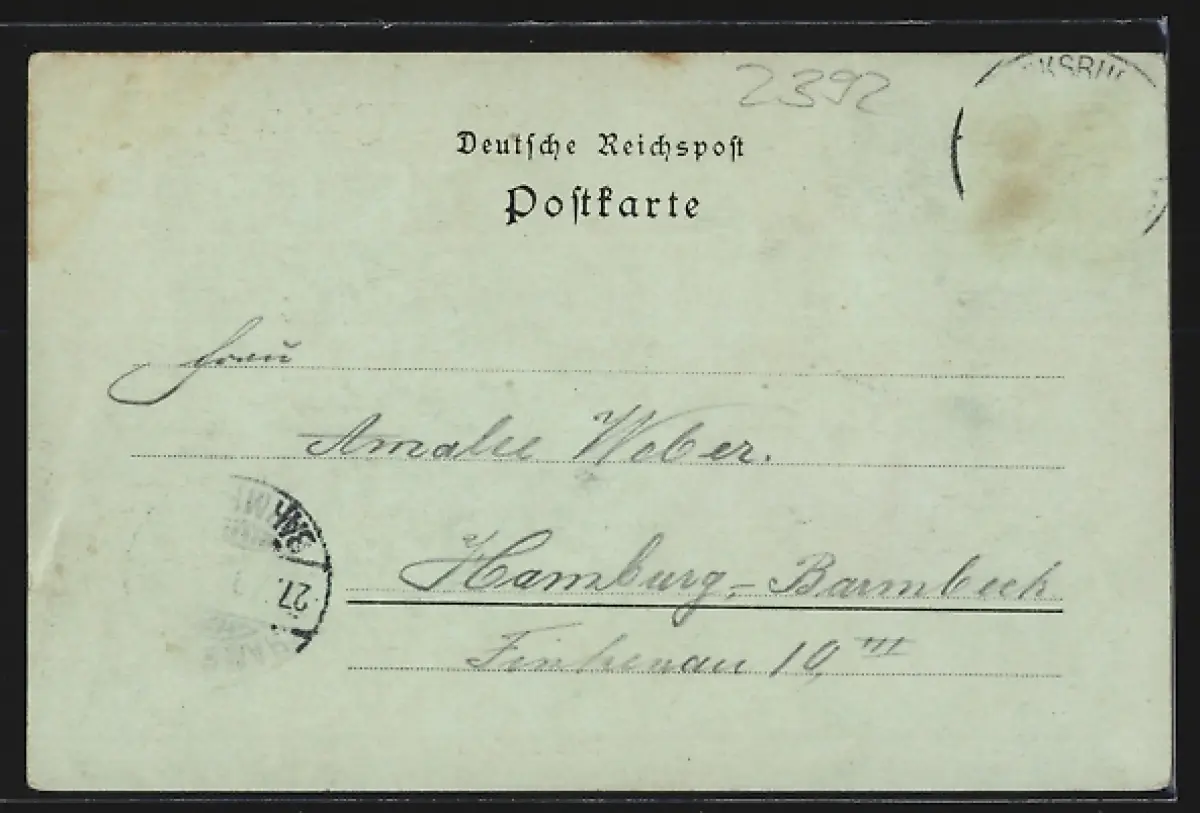 2392
KSBU
Deutsche Reichspost
Postkarte
Frau
Amalie Weber.
Hamburg,-Barmbeck
27.
Finkenau 10, III